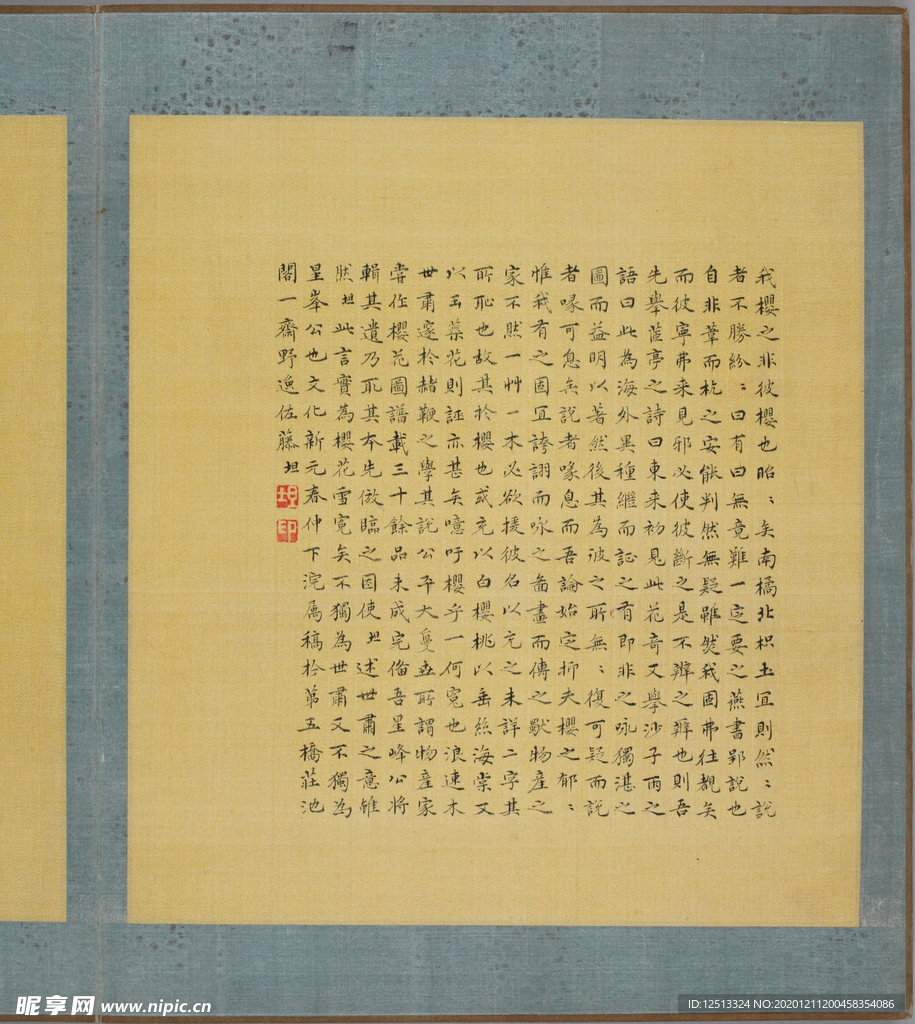 我櫻之非彼櫻也昭〻矣南橘北枳土宜則然〻說
者不勝紛〻曰有曰無竟難一定要之燕書郢說也
自非葦而杭之安能判然無疑雖然我固弗往覩矣
而彼寧弗来見邪必使彼斷之是不辨之辨也則吾
先舉蓝亭之詩曰東来初見此花奇又舉沙子雨之
語曰此為海外異種繼而証之有即非之咏獨湛之
圖而益明以著然後其為彼之所無〻復可疑而說
者喙可息矣說者喙息而吾論始定抑夫櫻之郁〻
惟我有之固宜誇詡而咏之啚畫而傳之獸物產之
家不然一艸一木必欲援彼名以充之未詳二字其
所恥也故其於櫻也或充以白櫻桃以垂絲海棠又
以玉蘂花則誣亦甚矣噫吁櫻乎一何冤也浪速木
世肅邃於赭鞭之學其說公平大戞世所謂物產家
嘗作櫻花圖譜載三十餘品未成完偹吾星峰公將
輯其遺乃取其本先倣臨之因使坦述世肅之意雖
然坦此言實為櫻花雪冤矣不獨為世肅又不獨為
星峯公也文化新元春仲下浣属稿於第五橋莊池
閣一齋野逸佐藤坦
坦
印
昵享网 www.nipic.cn
ID:12513324 NO:20201211200458354086